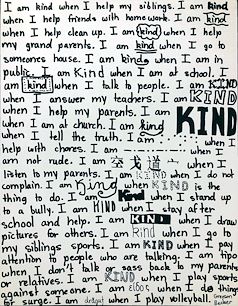 I am kind when I help my siblings. I am kind
when I help friends with homework. I am kind
when I help clean up. I am kind when I help
my grand parents. I am kind when I go to
someones house. I am kind when I am in
public. I am Kind when I am at school. I
am kind when I talk to people. I am KIND
when I answer my teachers. I am KIND
when I help my parents. I am KIND
when I am at church. I am kind
when I tell the truth. I am
help with chores. I am when I
am not rude. I am when I
listen to my parents. I am when I do not
complain. I am King when KIND is the
thing to do. I am Kind when I stand
to a bully. I am KIND when I stay after
school and help. I am KIND when I draw
pictures for others. I am Kind when I go to
my siblings sports. I am KIND when I pay
attention to people who are talking. I am
when I don't talk sass back to my parents
or relatives. I am KIND when I play sports
against someone. I am when I do things
for surge. I am when I play volleyball.